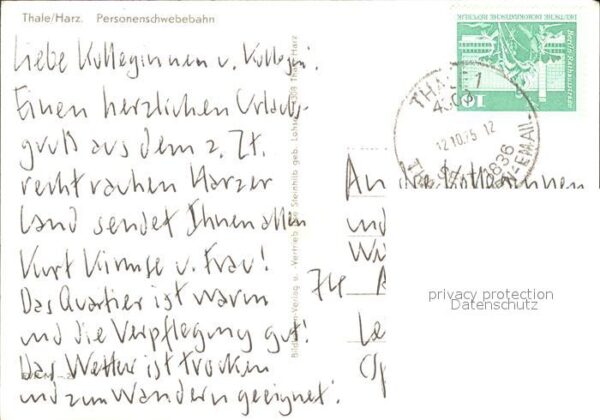 Thale/Harz. Personenschwebebahn
Liebe Kolleginnen u. Kollegen!
Einen herzlichen Urlaubs-
gruß aus dem z. Zt.
recht rauhen Harzer
Land sendet Ihnen allen
Kurt Kirmse u. Frau!
Das Quartier ist warm
und die Verpflegung gut!
Das Wetter ist trocken
und zum Wandern geeignet!
Bild und Verlag u. Vertrieb Steinhilb geb. Thale/Harz
DEUTSCHE DEMOKRATISCHE REPUBLIK
Berlin, Rathausstraße
10
THALE 1
4303
12.10.75 12
1836
EMAIL
An die Kolleginnen
und
74
privacy protection
Datenschutz